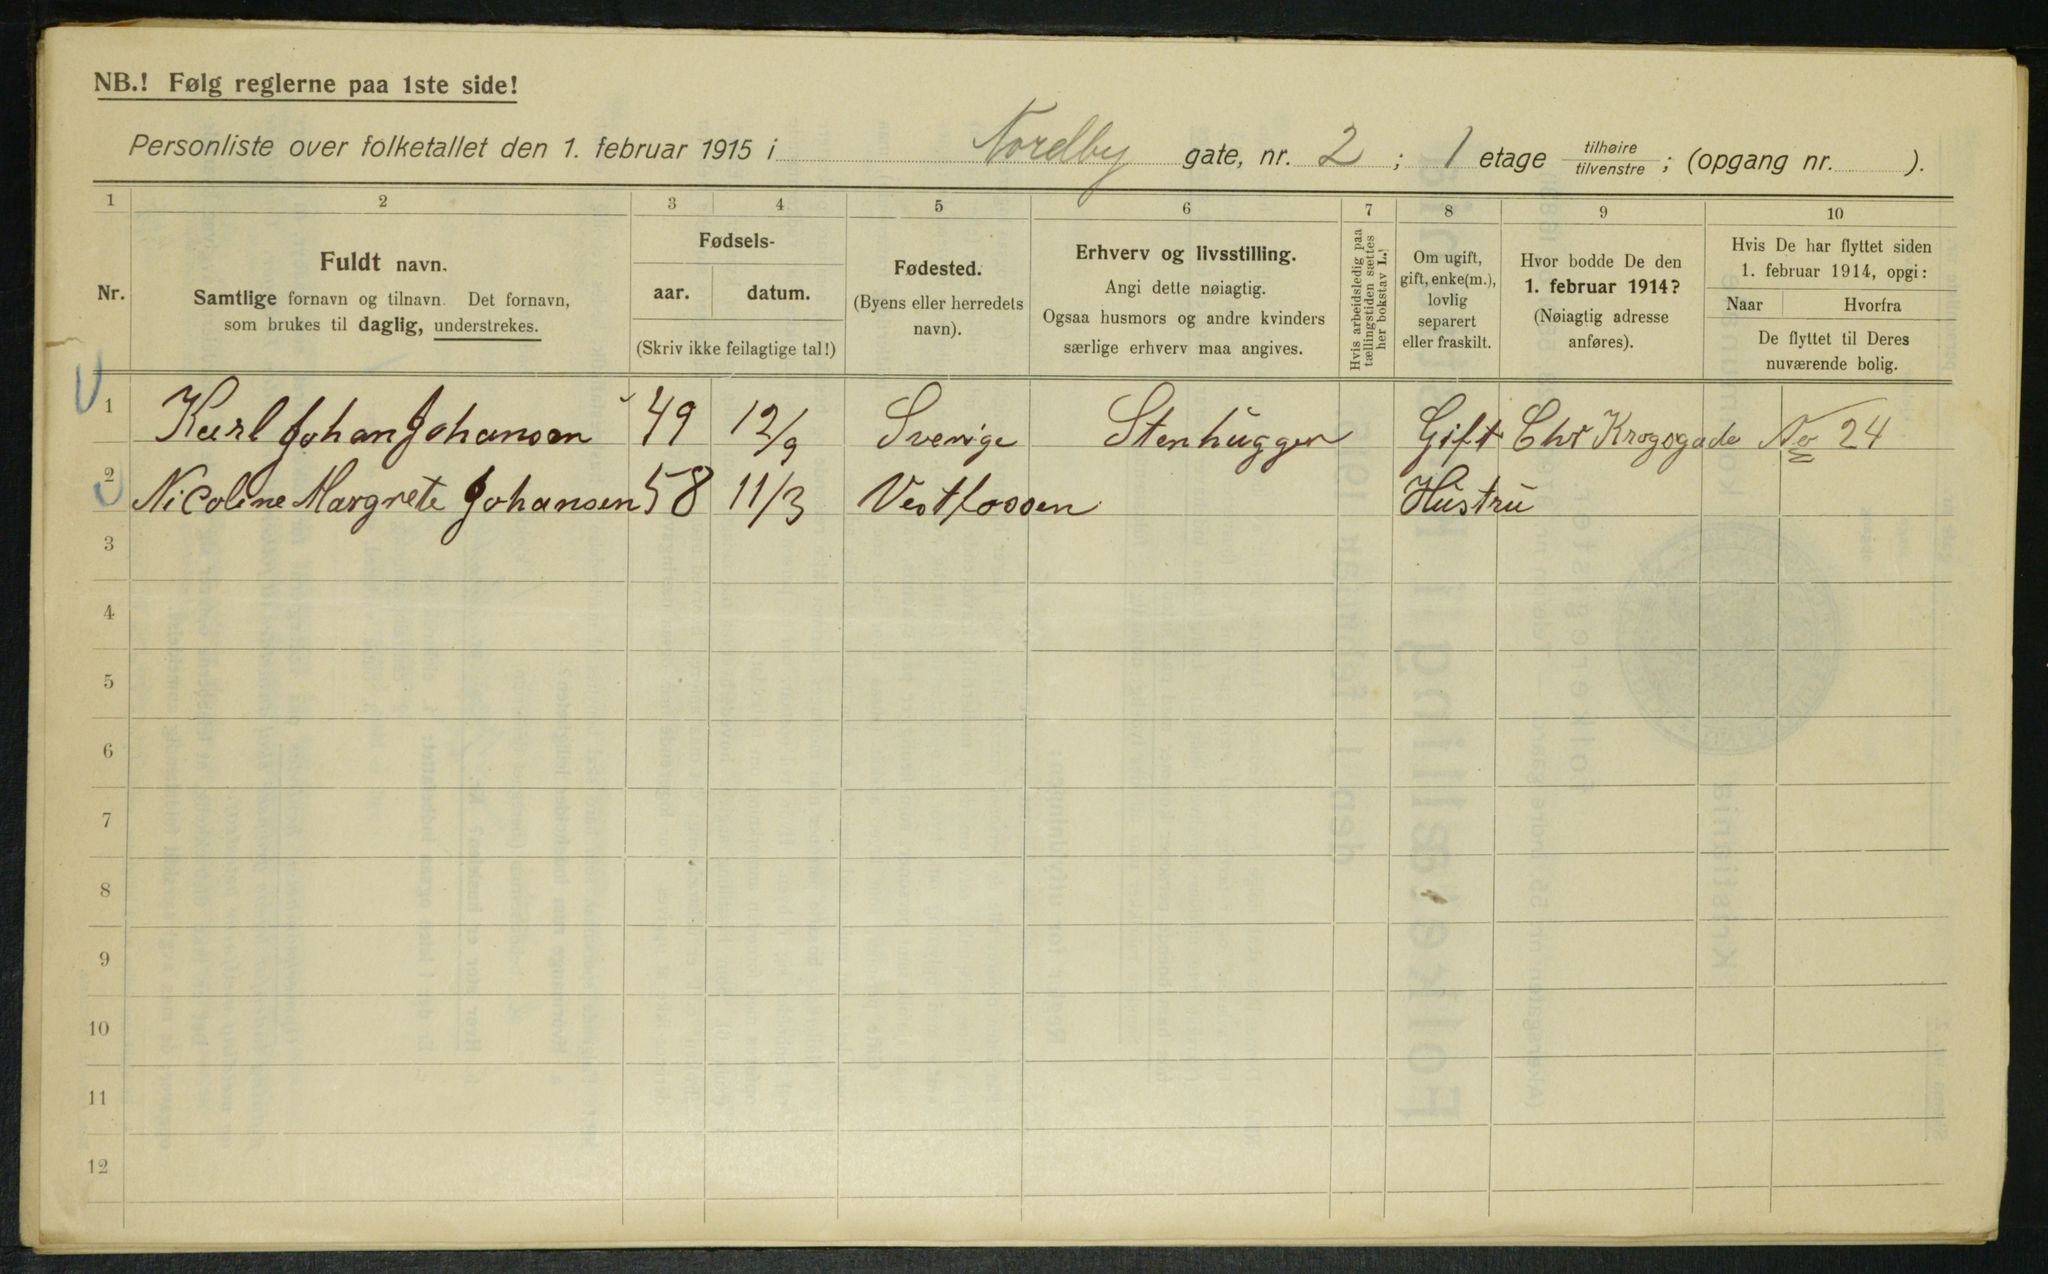 NB.! Følg reglerne paa 1ste side!
Personliste over folketallet den 1. februar 1915 i Nordby gate, nr. 2 ; 1 etage tilhøire tilvenstre ; (opgang nr. ).
1 2 3 4 5 6 7 8 9 10
Nr.
Fuldt navn.
Samtlige fornavn og tilnavn. Det fornavn,
som brukes til daglig, understrekes.
Fødsels-
aar. datum.
(Skriv ikke feilagtige tal!)
Fødested.
(Byens eller herredets
navn).
Erhverv og livsstilling.
Angi dette nøiagtig.
Ogsaa husmors og andre kvinders
særlige erhverv maa angives.
Hvis arbeidsledig paa
tællingstiden sættes
her bokstav L.!
Om ugift,
gift, enke(m.),
lovlig
separert
eller fraskilt.
Hvor bodde De den
1. februar 1914?
(Nøiagtig adresse
anføres).
Hvis De har flyttet siden
1. februar 1914, opgi:
Naar Hvorfra
De flyttet til Deres
nuværende bolig.
1 Karl Johan Johansen 49 12/9 Sverige Stenhugger Gift Chr Krogsgade No 24
2 Nicoline Margrete Johansen 58 11/3 Vestfossen Hustru
3
4
5
6
7
8
9
10
11
12